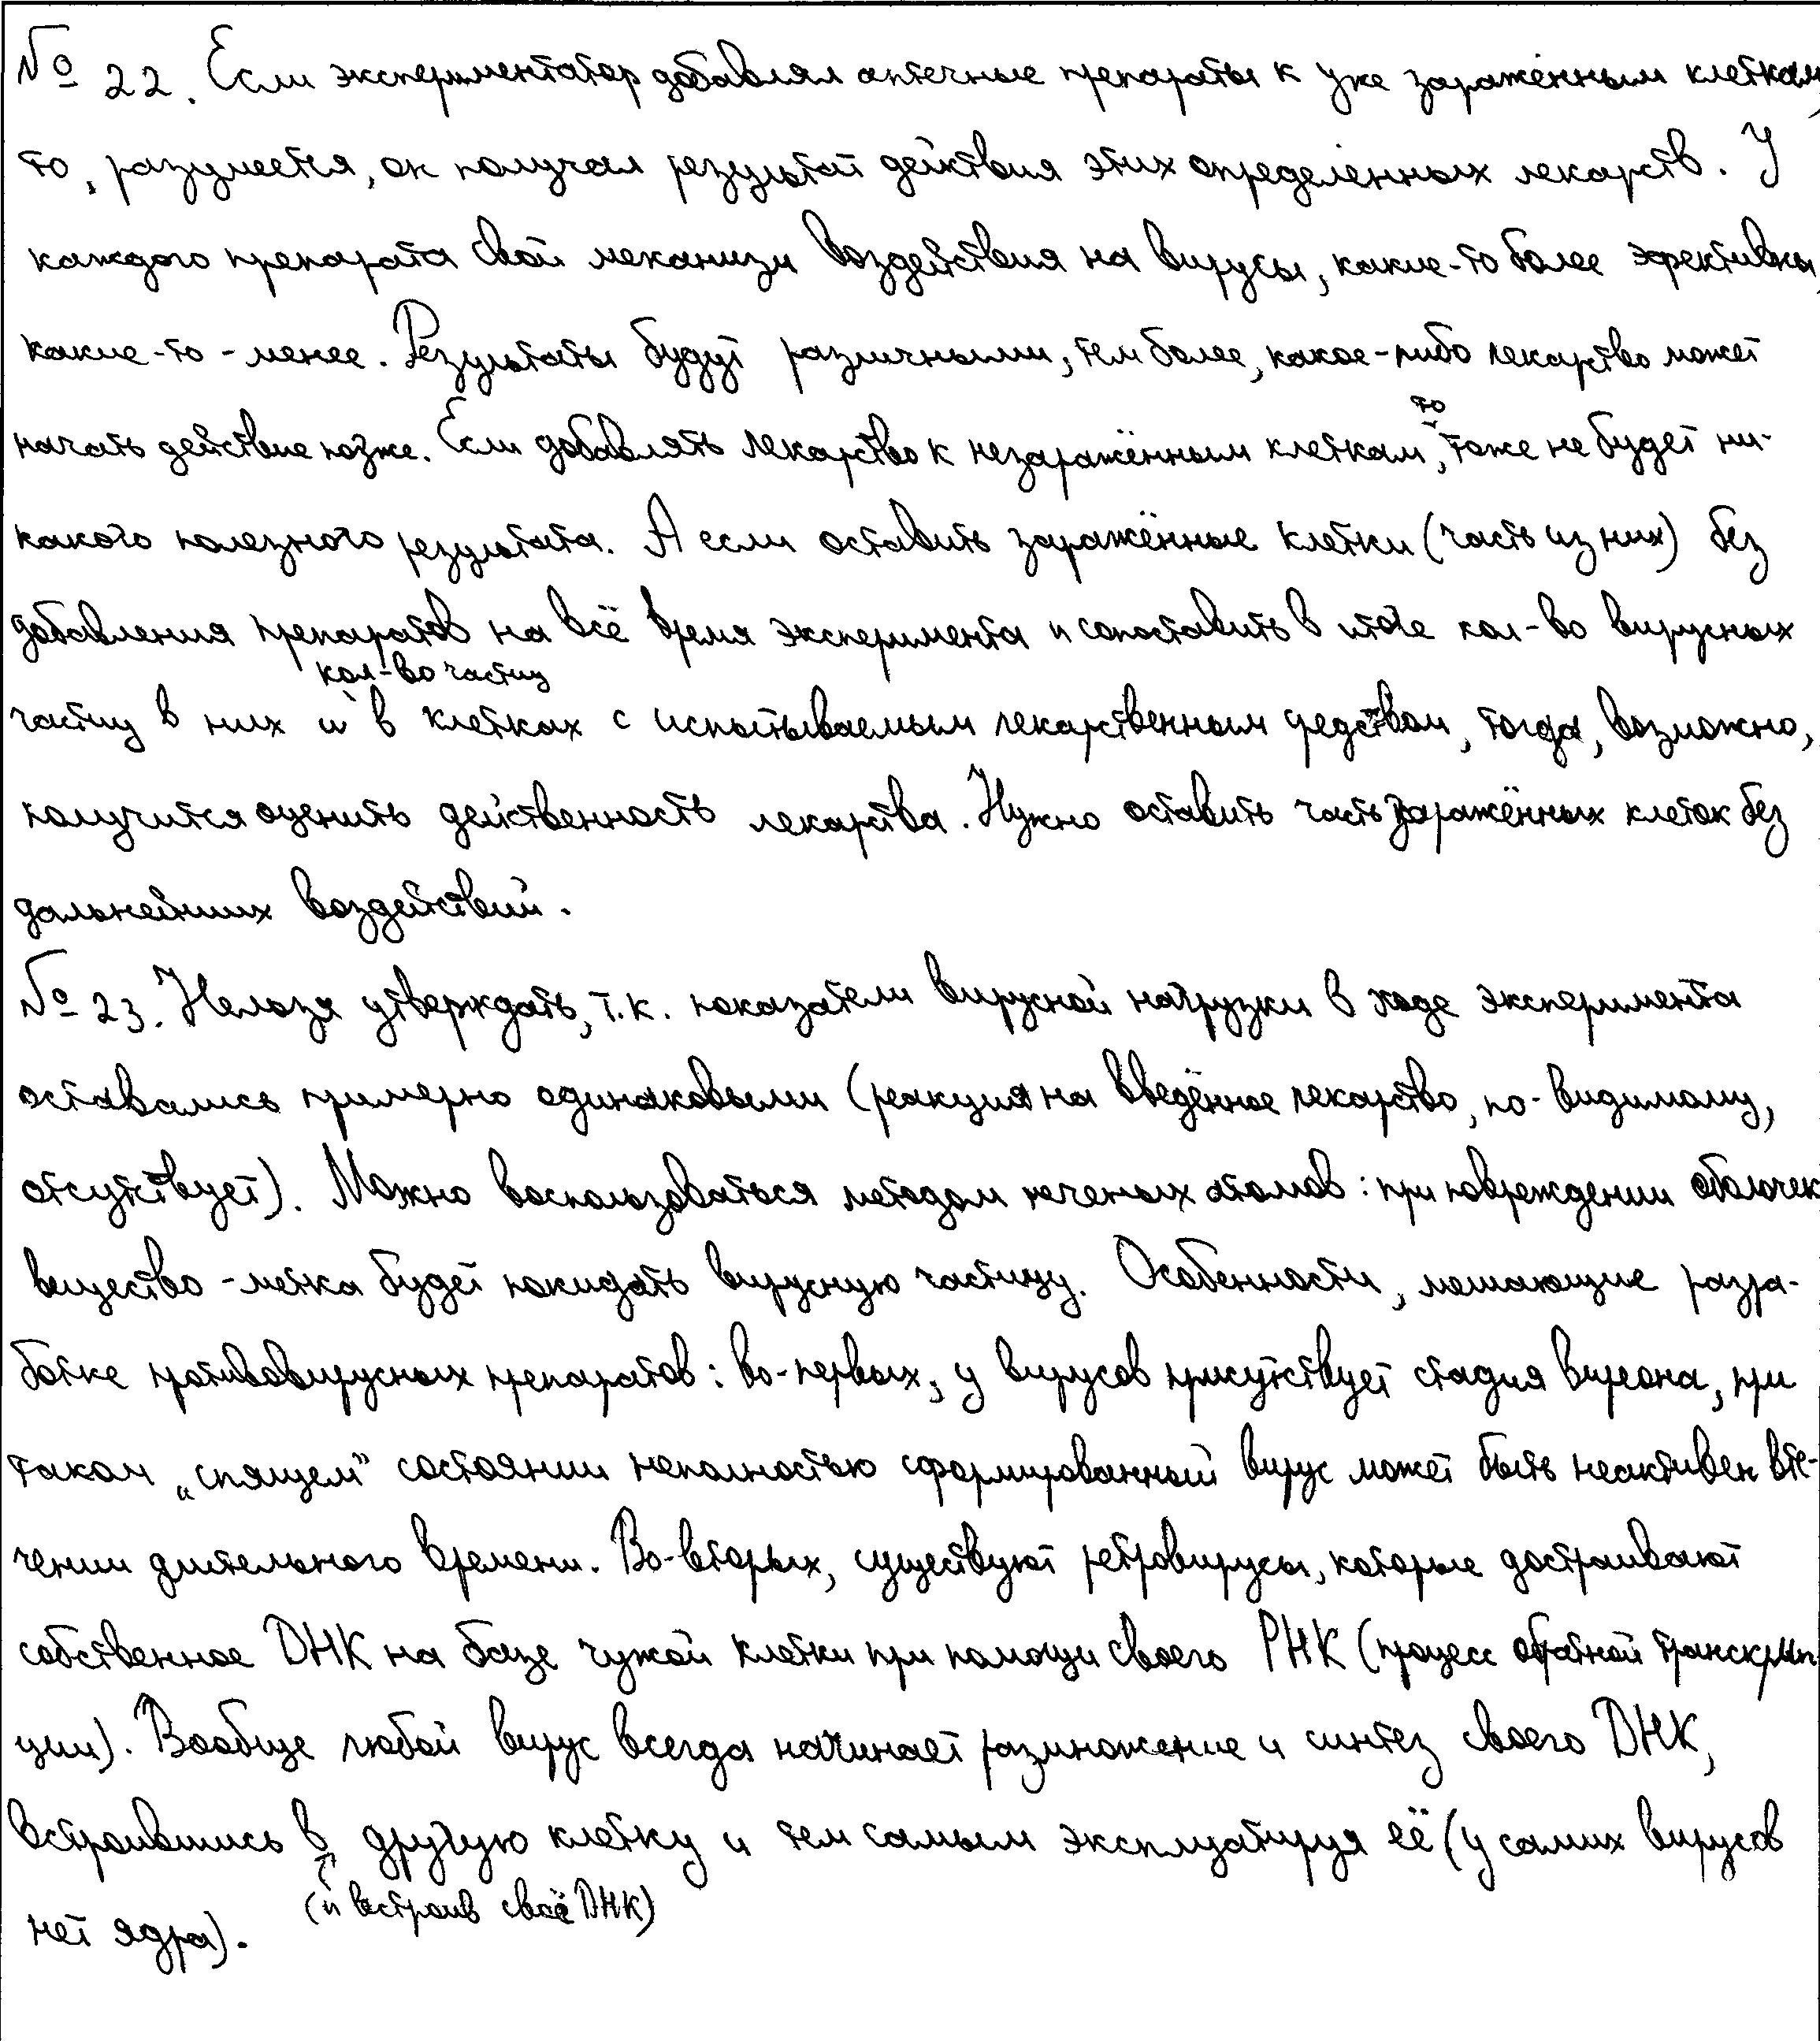 № 22. Если экспериментатор добавлял аптечные препараты к уже заражённым клеткам,
то, разумеется, он получал результат действия этих определённых лекарств. У
каждого препарата свой механизм воздействия на вирусы, какие-то более эфективны,
какие-то - менее. Результаты будут различными, тем более, какое-либо лекарство может
начать действие позже. Если добавлять лекарство к незаражённым клеткам, то тоже не будет ни-
какого полезного результата. А если оставить заражённые клетки (часть из них) без
добавления препаратов на всё время эксперимента и сопоставить в итоге кол-во вирусных
частиц в них и кол-во частиц в клетках с испытываемым лекарственным средством, тогда, возможно,
получится оценить действенность лекарства. Нужно оставить часть заражённых клеток без
дальнейших воздействий.
№ 23. Нельзя утверждать, т.к. показатели вирусной нагрузки в ходе эксперимента
оставались примерно одинаковыми (реакция на введённое лекарство, по-видимому,
отсутствует). Можно воспользоваться методом меченых атомов: при повреждении оболочек
вещество-метка будет покидать вирусную частицу. Особенности, мешающие разра-
ботке противовирусных препаратов: во-первых, у вирусов присутствует стадия вириона, при
таком „спящем" состоянии неполностью сформированный вирус может быть неактивен вте-
чении длительного времени. Во-вторых, существуют ретровирусы, которые достраивают
собственное ДНК на базе чужой клетки при помощи своего РНК (процесс обратной транскрип
ции). Вообще любой вирус всегда начинает размножение и синтез своего ДНК,
встроившись в другую клетку и тем самым эксплуатируя её (у самих вирусов
(и встроив своё ДНК)
нет ядра).